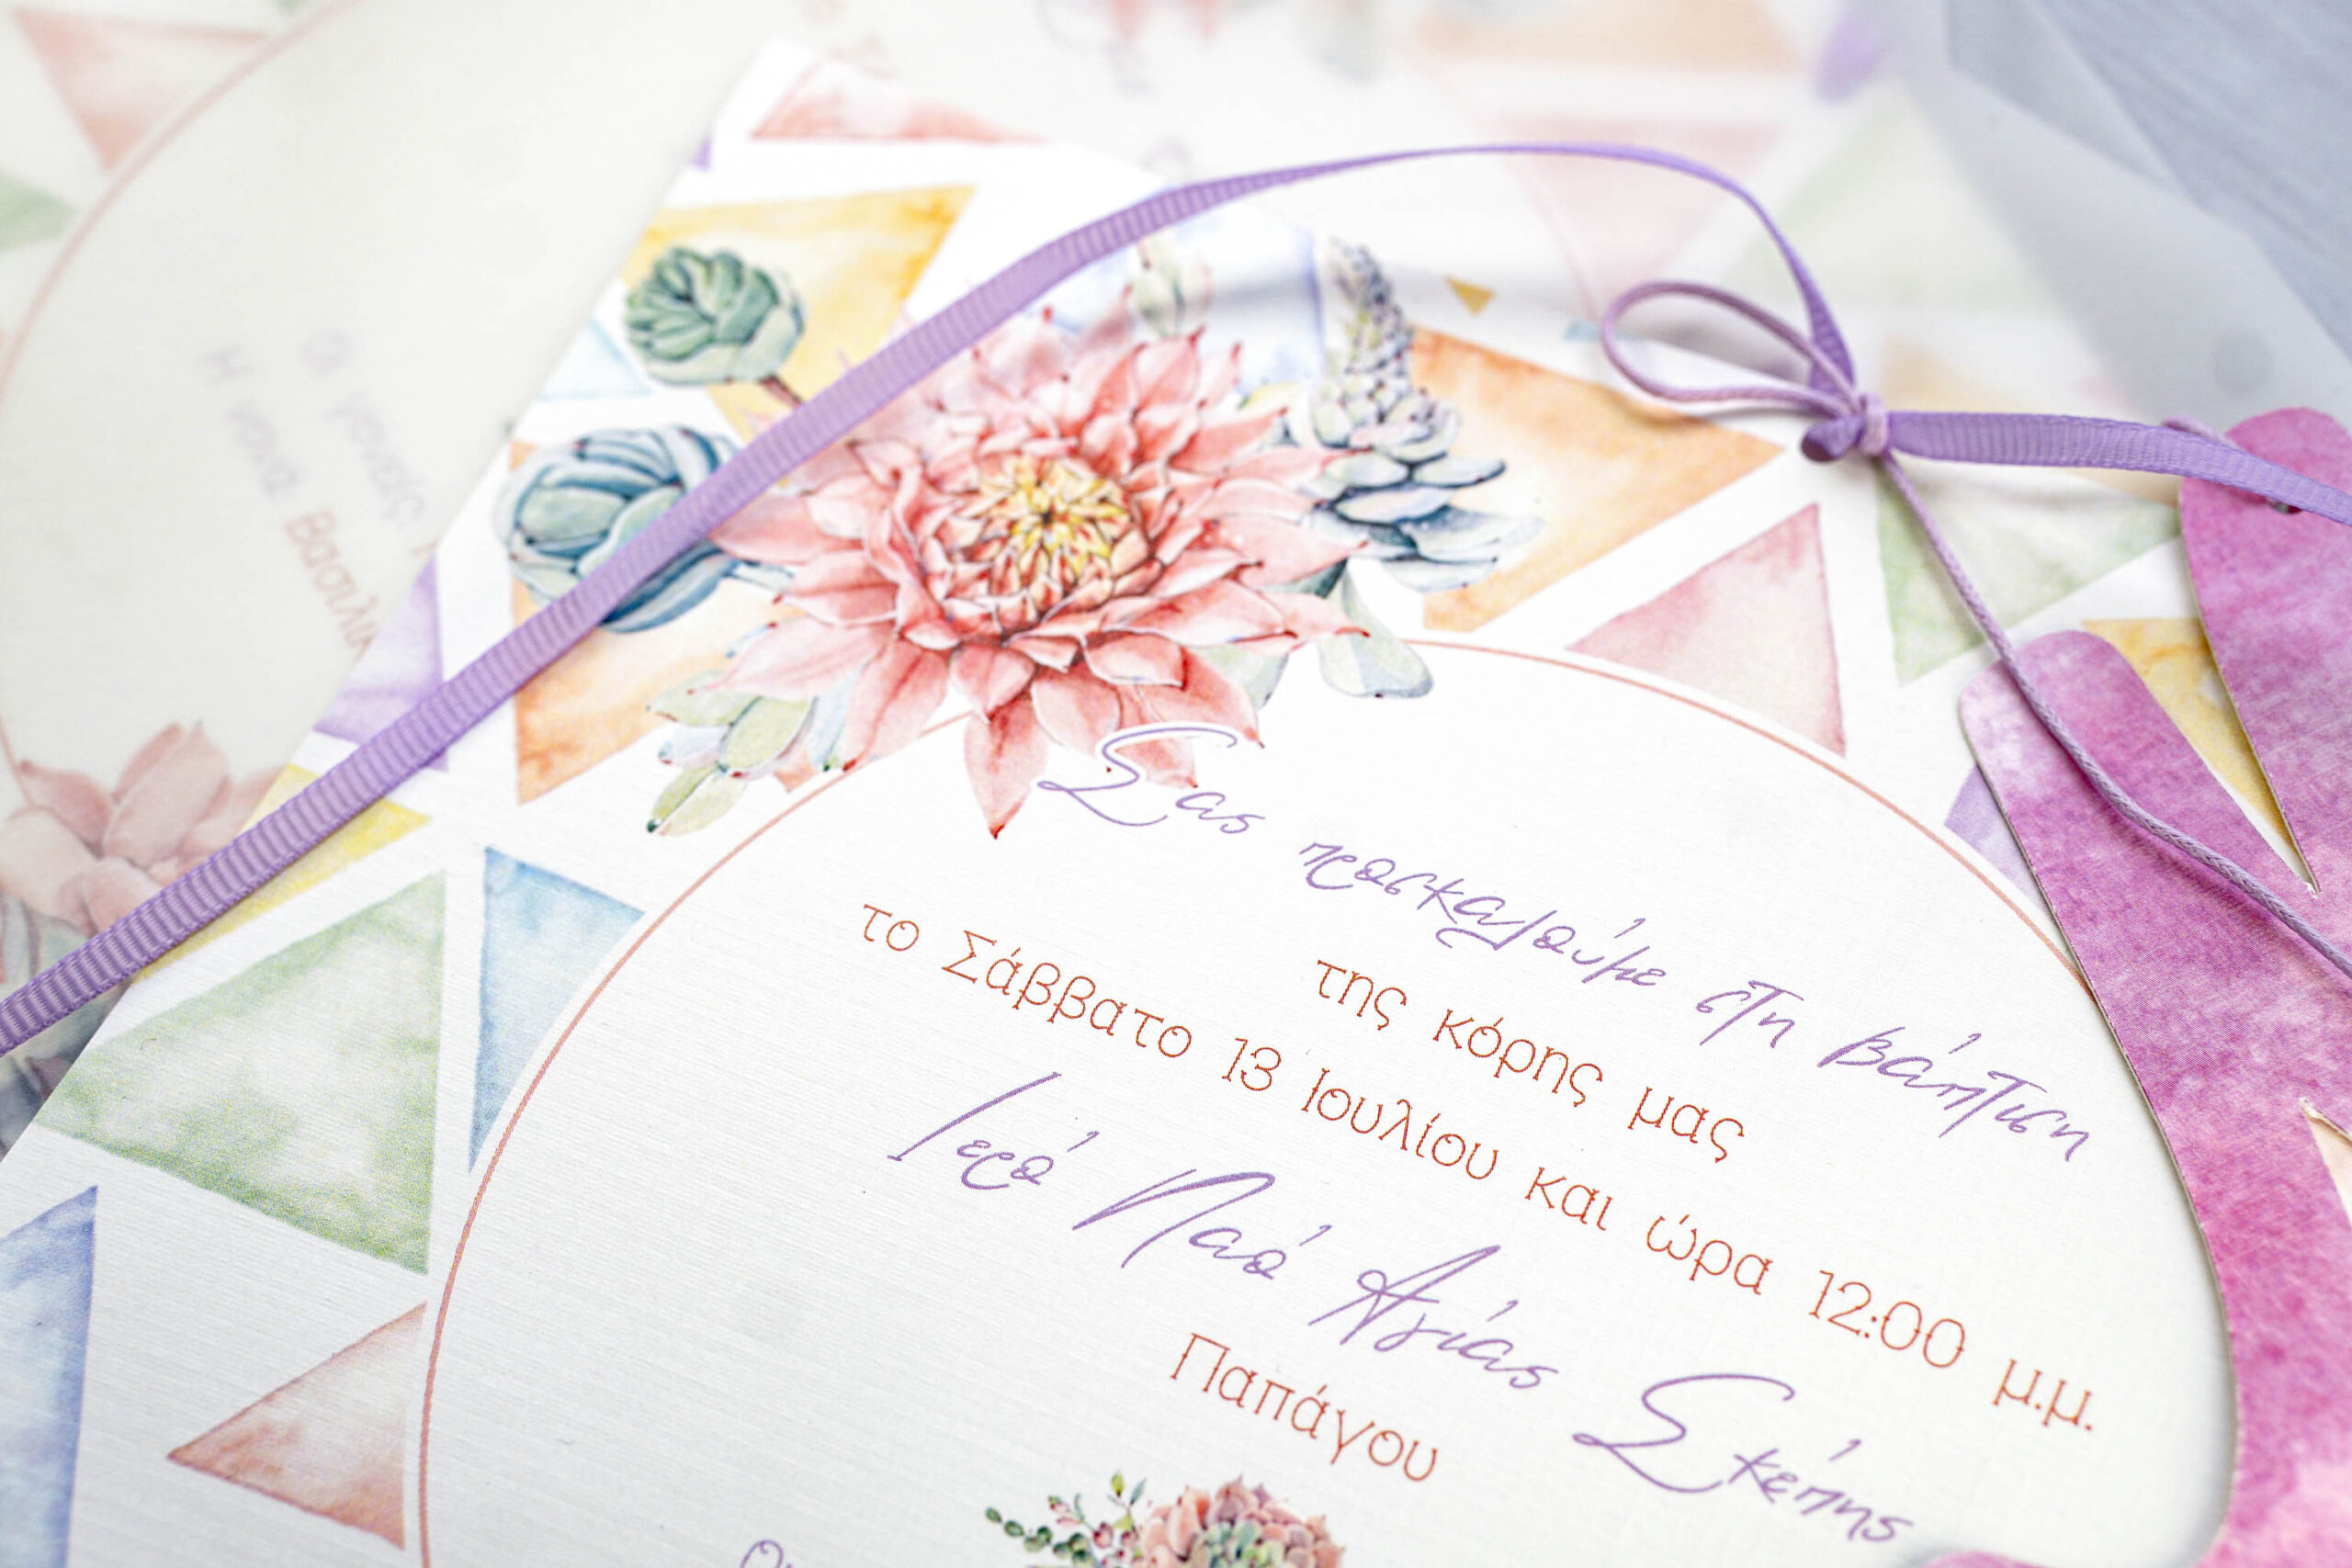 Σας προσκαλούμε στη βάπτιση
της κόρης μας
το Σάββατο 13 Ιουλίου και ώρα 12:00 μ.μ.
Ιερό Ναό Αγίας Σκέπης
Παπάγου
Οι γονείς
Η νονά